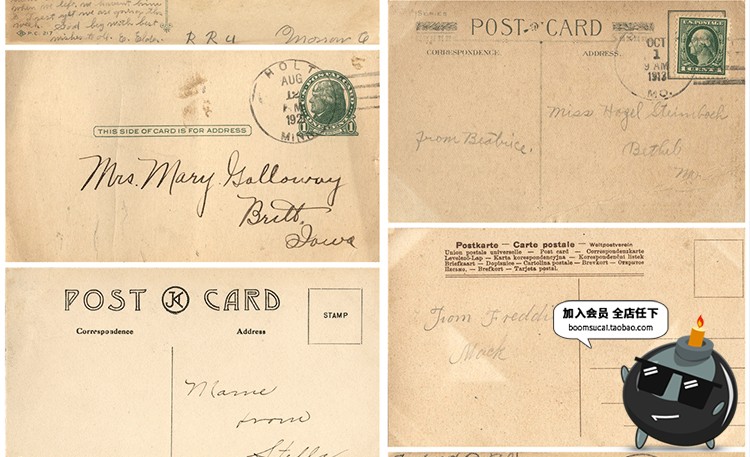 wishes to
R R 4
HOLT
AUG
12
MINN
THIS SIDE OF CARD IS FOR ADDRESS
Mrs. Mary Galloway
Britt.
Iowa
POST JK CARD
Correspondence
Address
STAMP
Mame
from
Stella
POST CARD
CORRESPONDENCE
ADDRESS
OCT
1
9 AM
1913
MO.
U.S. POSTAGE
1 CENT 1
From Beatrice.
Miss Hazel
Bethel
Mo.
Postkarte — Carte postale — Weltpostverein
Union postale universelle — Post card — Correspondenzkarte
Levelező-Lap — Karta korespondencyjna — Korespondenční lístek
Briefkaart — Dopisnice — Cartolina postale — Brevkort — Открытое
Письмо. — Brefkort — Tarjeta postal.
From Freddi
Mack
加入会员 全店任下
boomsucai.taobao.com